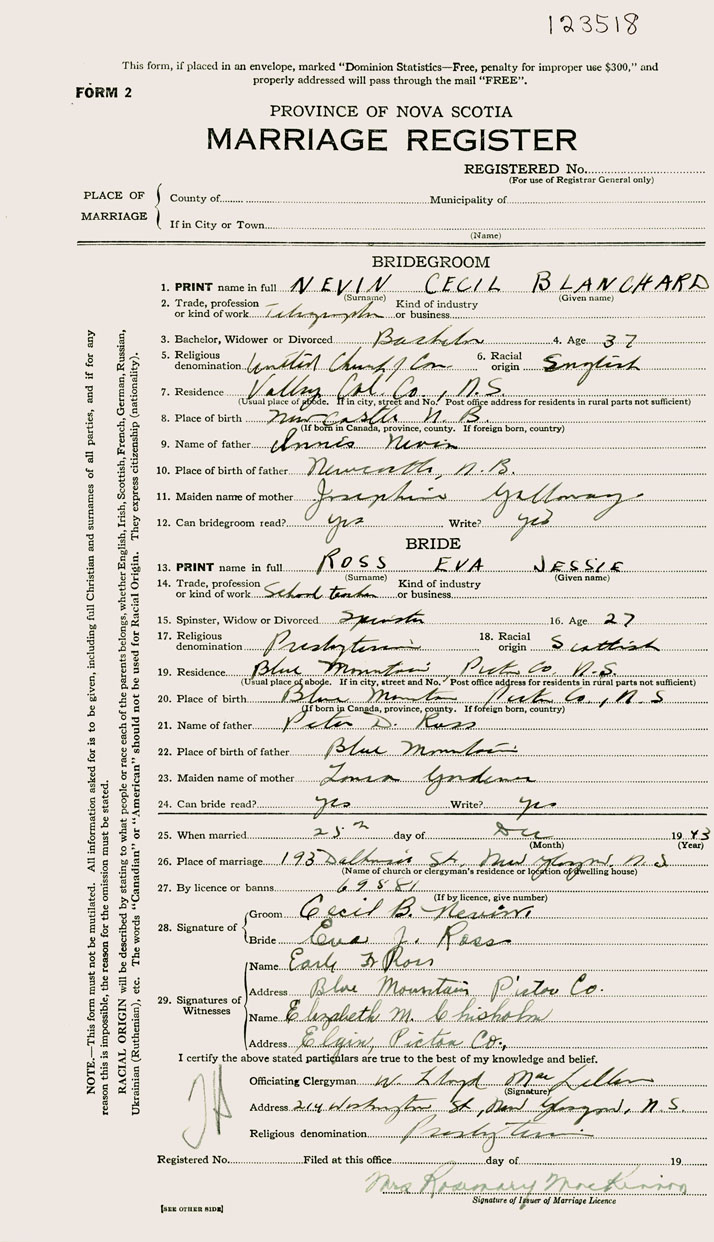 123518
This form, if placed in an envelope, marked “Dominion Statistics—Free, penalty for improper use $300,” and
properly addressed will pass through the mail “FREE”.
FORM 2
PROVINCE OF NOVA SCOTIA
MARRIAGE REGISTER
REGISTERED No.
(For use of Registrar General only)
PLACE OF MARRIAGE
County of Municipality of
If in City or Town
(Name)
BRIDEGROOM
1. PRINT name in full NEVIN CECIL BLANCHARD
(Surname) (Given name)
2. Trade, profession or kind of work Kind of industry or business
3. Bachelor, Widower or Divorced Bachelor 4. Age 37
5. Religious denomination United Church of Can. 6. Racial origin English
7. Residence Valley Col. Co., N.S.
(Usual place of abode. If in city, street and No. Post office address for residents in rural parts not sufficient)
8. Place of birth Newcastle N.B.
(If born in Canada, province, county. If foreign born, country)
9. Name of father Nevin
10. Place of birth of father Newcastle, N.B.
11. Maiden name of mother Josephine Galloway
12. Can bridegroom read? yes Write? yes
BRIDE
13. PRINT name in full ROSS EVA JESSIE
(Surname) (Given name)
14. Trade, profession or kind of work School teacher Kind of industry or business
15. Spinster, Widow or Divorced Spinster 16. Age 27
17. Religious denomination Presbyterian 18. Racial origin Scottish
19. Residence Blue Mountain Pict. Co. N.S.
(Usual place of abode. If in city, street and No. Post office address for residents in rural parts not sufficient)
20. Place of birth Blue Mountain Pict. Co., N.S
(If born in Canada, province, county. If foreign born, country)
21. Name of father Peter D. Ross
22. Place of birth of father Blue Mountain
23. Maiden name of mother
24. Can bride read? yes Write? yes
25. When married 25th day of Dec 1943
(Month) (Year)
26. Place of marriage 193 Dalhousie St., New Glasgow, N.S
(Name of church or clergyman's residence or location of dwelling house)
27. By licence or banns 69881
(If by licence, give number)
28. Signature of Groom Cecil B. Nevin
Bride Eva J. Ross
29. Signatures of Witnesses
Name Earle F. Ross
Address Blue Mountain Pictou Co.
Name Elizabeth M. Chisholm
Address Elgin, Pictou Co.,
I certify the above stated particulars are true to the best of my knowledge and belief.
Officiating Clergyman W. Lloyd MacLellan
(Signature)
Address 214 Washington St., New Glasgow, N.S.
Religious denomination Presbyterian
Registered No. Filed at this office day of 19
Mrs Rosemary MacKinnon
Signature of Issuer of Marriage Licence
[SEE OTHER SIDE]
NOTE.—This form must not be mutilated. All information asked for is to be given, including full Christian and surnames of all parties, and if for any
reason this is impossible, the reason for the omission must be stated.
RACIAL ORIGIN will be described by stating to what people or race each of the parents belongs, whether English, Irish, Scottish, French, German, Russian,
Ukrainian (Ruthenian), etc. The words “Canadian” or “American” should not be used for Racial Origin. They express citizenship (nationality).